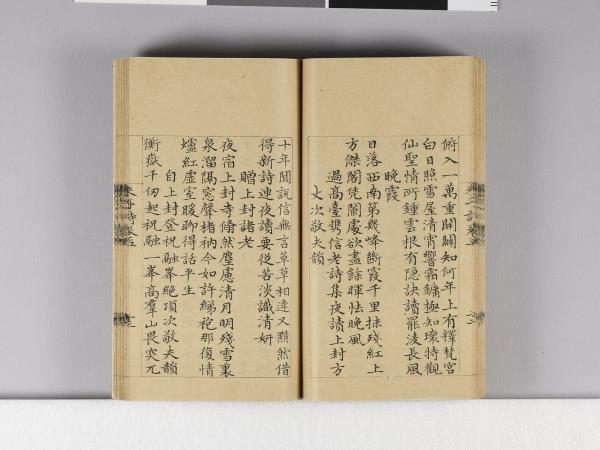 俯入一萬重開闢知何年上有釋梵宮
白日照雪屋清宵響霜鏞極知瓌特觀
仙聖情所鍾雲根有隱訣讀罷淩長風
晚霞
日落西南第幾峰斷霞千里抹殘紅上
方傑閣凭闌處欲盡餘暉怯晚風
過高臺携信老詩集夜讀上封方
丈次敬夫韻
十年聞說信無言草草相逢又黯然借
得新詩連夜讀要從苦淡識清妍
贈上封諸老
夜宿上封寺翛然塵慮清月明殘雪裏
泉溜隔窓聲楮衲今如許綈袍那復情
爐紅虛室暖聊得話平生
自上封登祝融峯絕頂次敬夫韻
衡嶽千仞起祝融一峯高羣山畏突兀